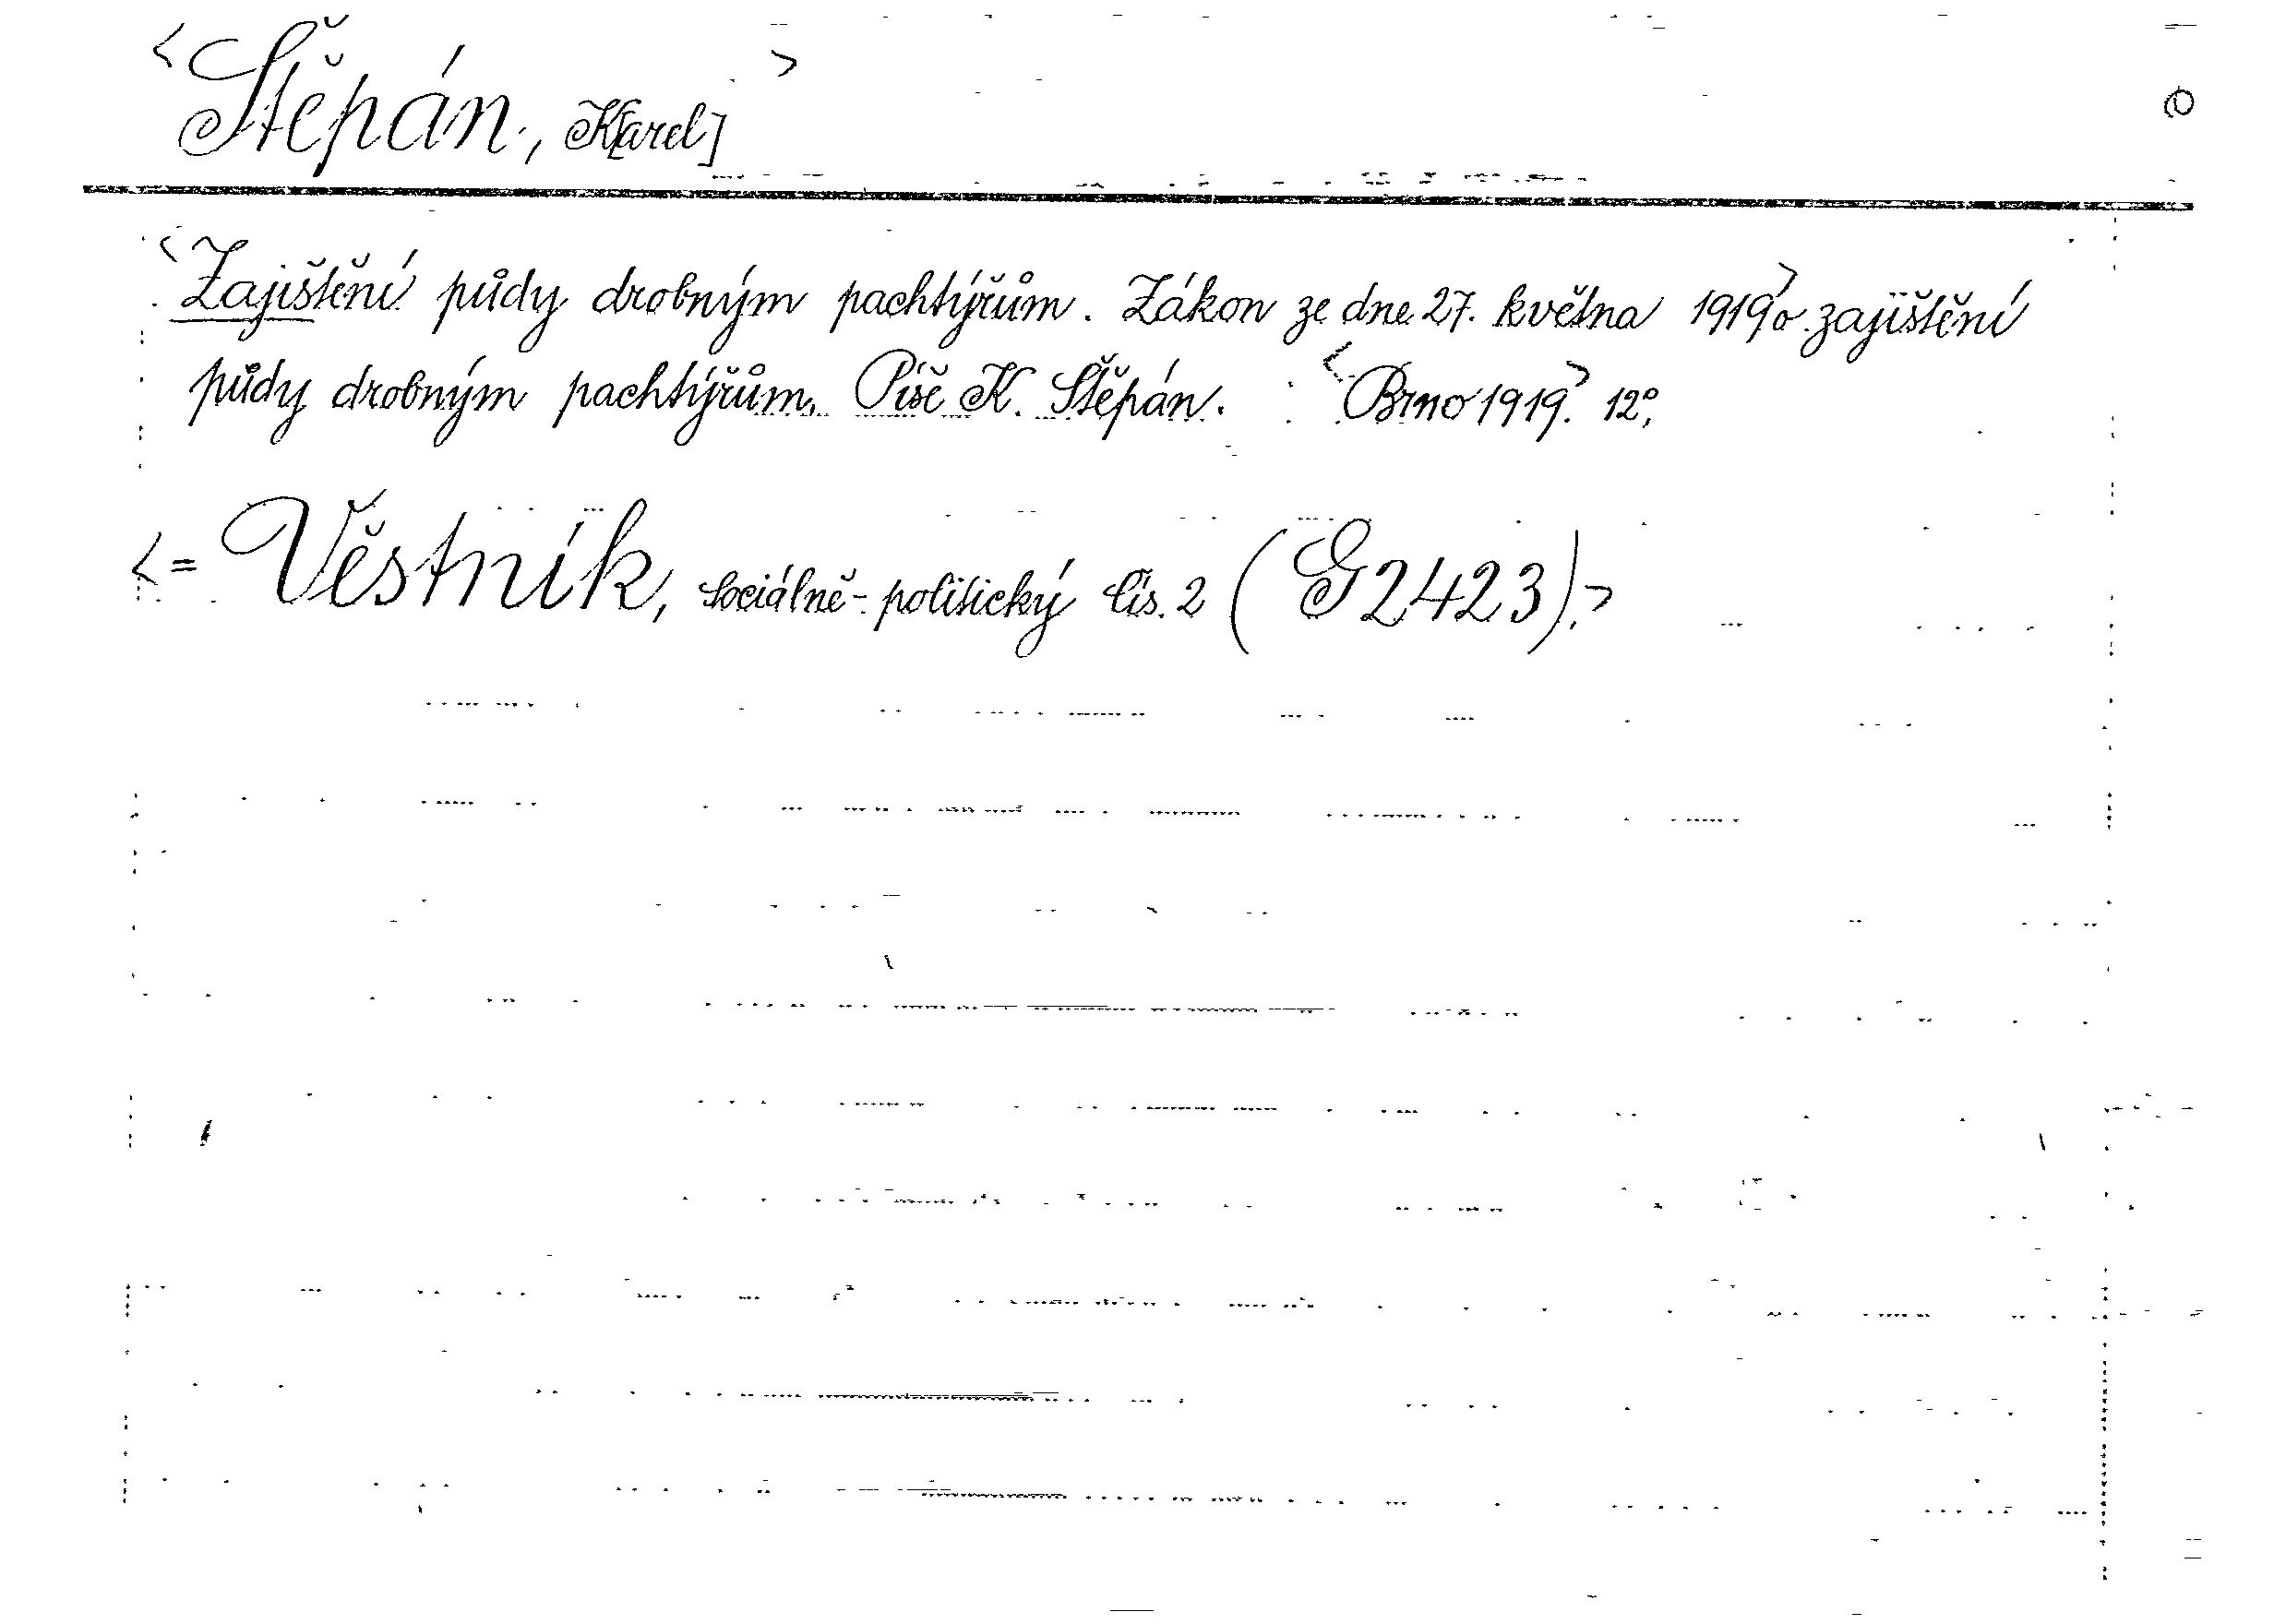 <Štěpán, K[arel] >
<Zajištění půdy drobným pachtýřům. Zákon ze dne 27. května 1919> o zajištění
půdy drobným pachtýřům. Píše K. Štěpán. <Brno 1919.> 12°,
<= Věstník, sociálně-politický čís. 2 (G 2423).>